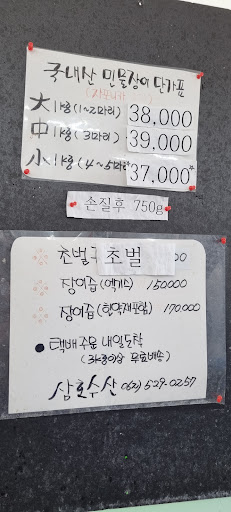 국내산 민물장어 단가표
(자포니카)
大 1kg (1~2마리) 38,000
中 1kg (3마리) 39,000
小 1kg (4~5마리) 37,000
손질후 750g
초벌구 초벌 00
장어즙 (엑기스) 150000
장어즙 (한약재포함) 170,000
● 택배주문 내일도착
(3kg이상 무료배송)
삼호수산 062) 529-0257